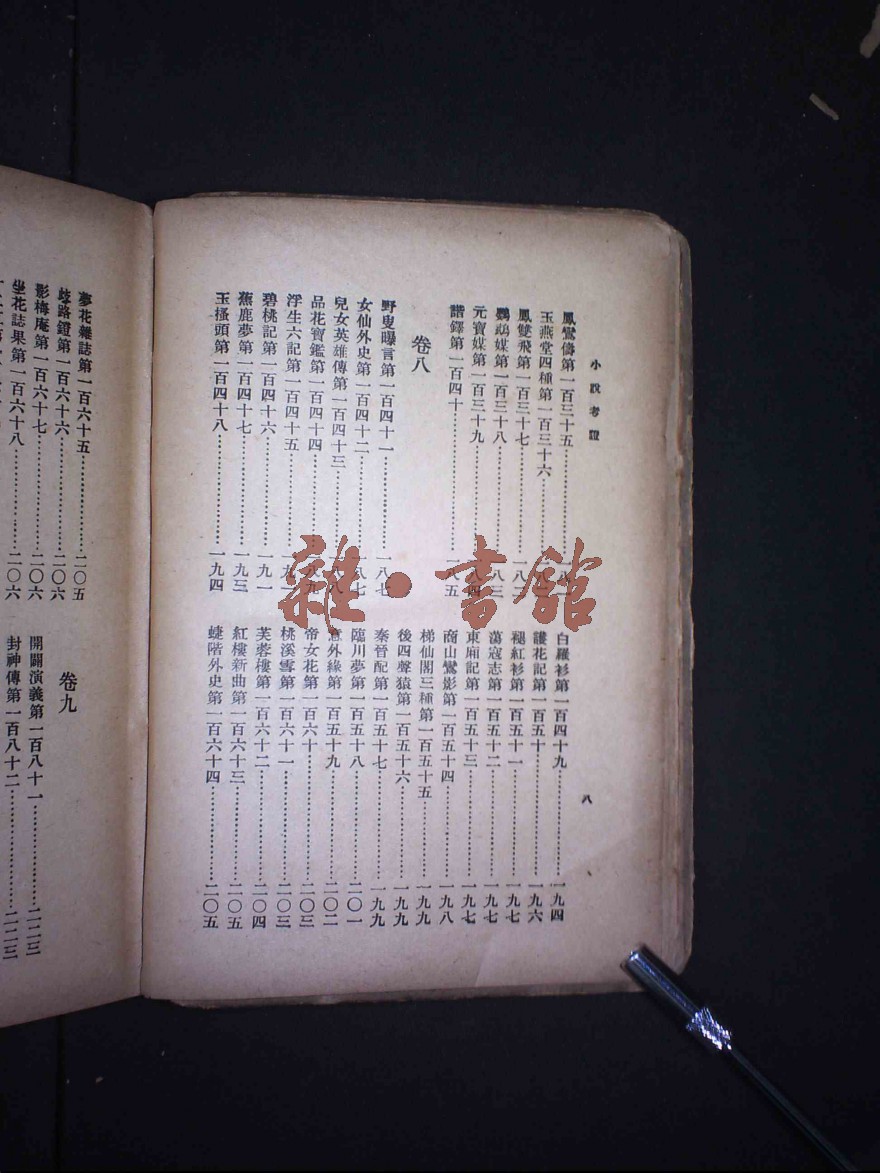 小說考證
八
鳳鸞儔第一百三十五
玉燕堂四種第一百三十六
鳳雙飛第一百三十七
鸚鵡媒第一百三十八
元寶媒第一百三十九
諧鐸第一百四十……一八五
卷八
野叟曝言第一百四十一……一八七
女仙外史第一百四十二……一八七
兒女英雄傳第一百四十三……一八八
品花寶鑑第一百四十四……一八九
浮生六記第一百四十五……一九一
碧桃記第一百四十六……一九一
蕉鹿夢第一百四十七……一九三
玉搔頭第一百四十八……一九四
白羅衫第一百四十九……一九四
護花記第一百五十……一九六
褪紅衫第一百五十一……一九七
蕩寇志第一百五十二……一九七
東廂記第一百五十三……一九七
商山鸞影第一百五十四……一九八
梯仙閣三種第一百五十五……一九九
後四聲猿第一百五十六……一九九
秦晉配第一百五十七……一九九
臨川夢第一百五十八……二〇一
意外緣第一百五十九……二〇二
帝女花第一百六十……二〇三
桃溪雪第一百六十一……二〇三
芙蓉樓第一百六十二……二〇四
紅樓新曲第一百六十三……二〇五
蜨階外史第一百六十四……二〇五
夢花雜誌第一百六十五……二〇五
歧路鐙第一百六十六……二〇六
影梅庵第一百六十七……二〇六
坐花誌果第一百六十八……二〇六
卷九
開闢演義第一百八十一……二二三
封神傳第一百八十二……二二三
雜·書館